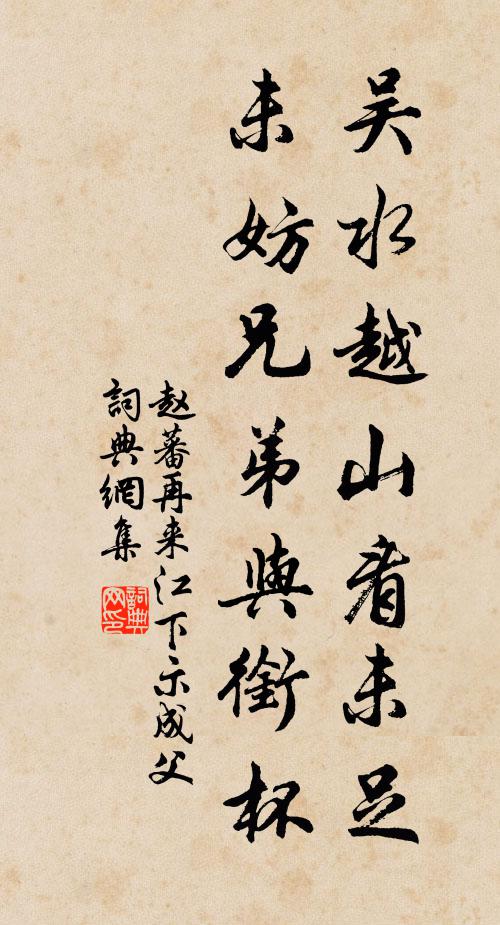 吴水越山看未足
未妨兄弟與銜杯
赵蕃再来江下示成父
詞典網集
詞典網印